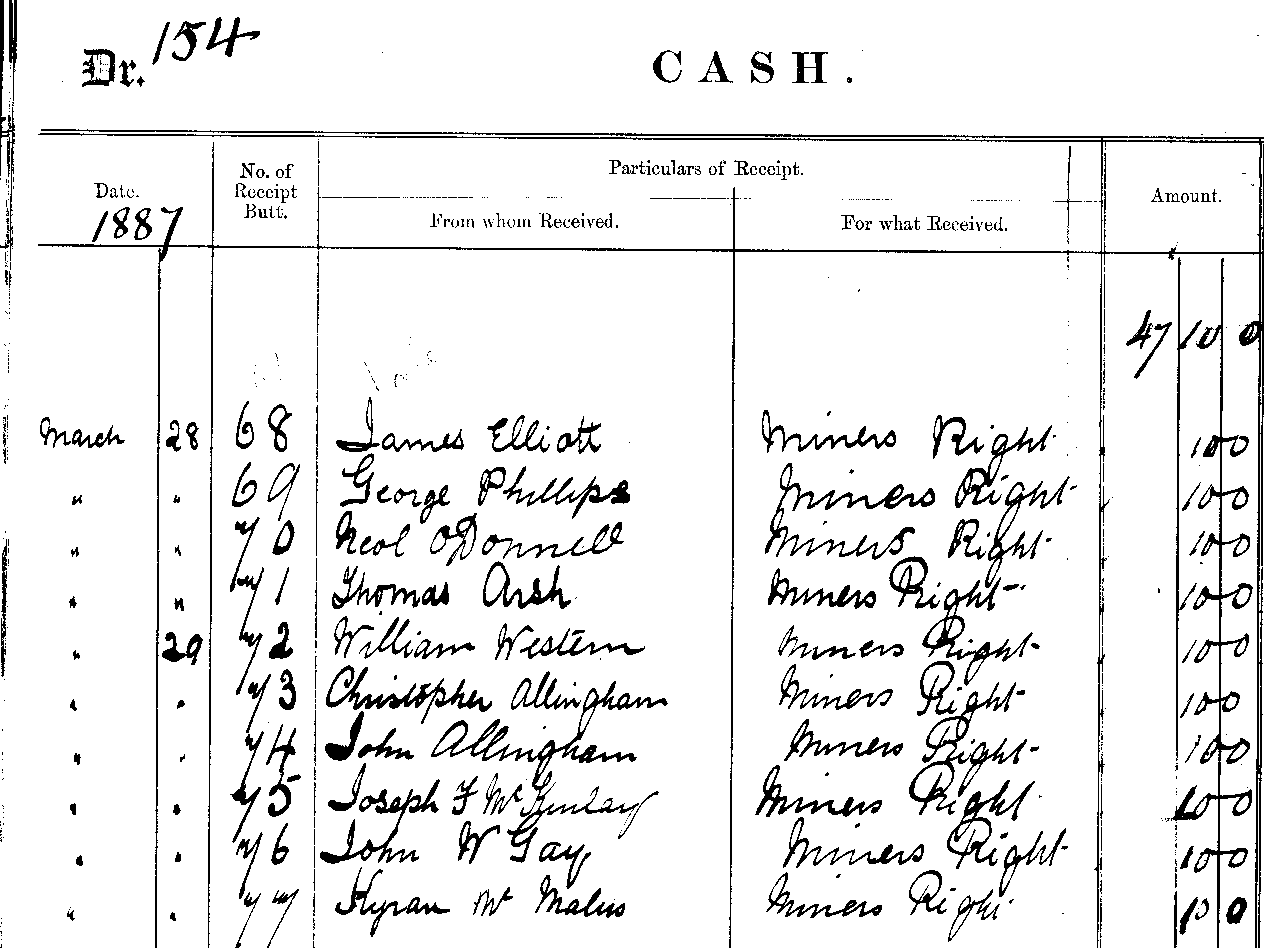 Dr. 154
CASH.
Date. No. of Receipt Butt. Particulars of Receipt. Amount.
1887 From whom Received. For what Received.
47 10 0
March 28 68 James Elliott Miners Right 10 0
" " 69 George Phillips Miners Right 10 0
" " 70 Neol O'Donnell Miners Right 10 0
" " 71 Thomas Arsh Miners Right 10 0
" 29 72 William Western Miners Right 10 0
" " 73 Christopher Allingham Miners Right 10 0
" " 74 John Allingham Miners Right 10 0
" " 75 Joseph F McKinlay Miners Right 10 0
" " 76 John W Gay Miners Right 10 0
" " 77 Kyran Mc Miners Right 10 0